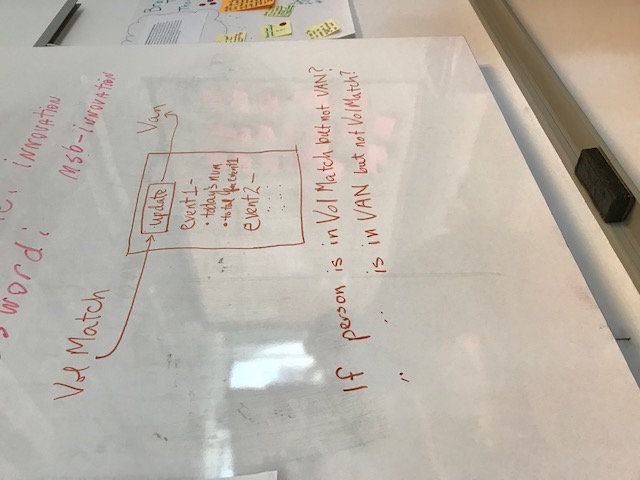 innovation
msb-innovation
Vol Match
update
Van
event 1 -
• today's num
• total for event 1
event 2 -
If person is in Vol Match but not VAN?
" " is in VAN but not VolMatch?